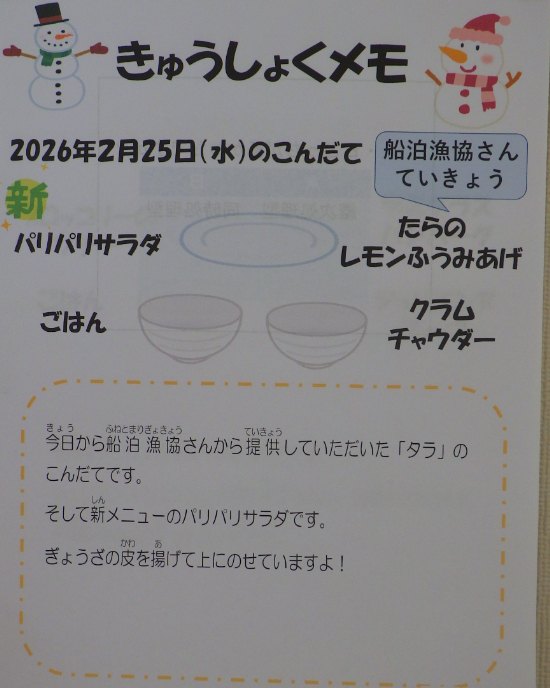 きゅうしょくメモ
2026年2月25日(水)のこんだて
船泊漁協さん
ていきょう
新
パリパリサラダ
たらの
レモンふうみあげ
ごはん
クラム
チャウダー
きょう ふねとまりぎょきょう ていきょう
今日から船泊漁協さんから提供していただいた「タラ」の
こんだてです。
しん
そして新メニューのパリパリサラダです。
かわ あ
ぎょうざの皮を揚げて上にのせていますよ！